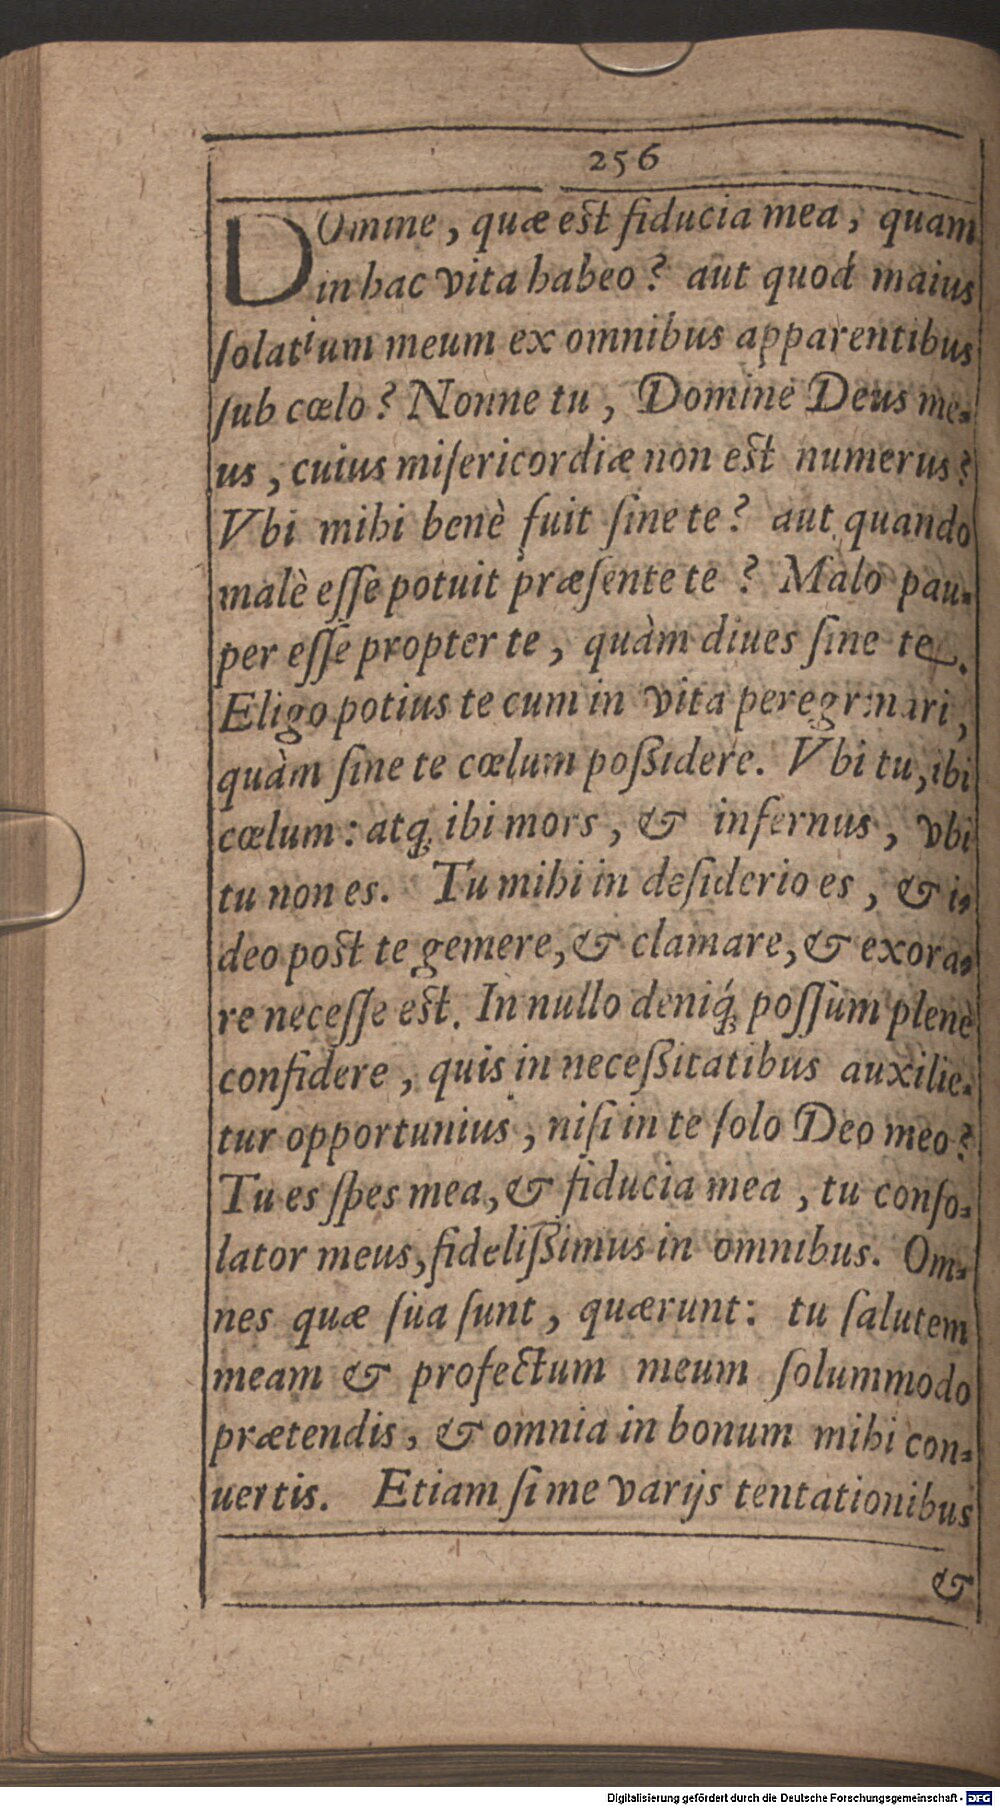 256
DOmine, quæ est fiducia mea, quam
in hac vita habeo? aut quod maius
ſolatium meum ex omnibus apparentibus
ſub cœlo? Nonne tu, Domine Deus me-
us, cuius miſericordiæ non est numerus?
Vbi mihi benè fuit ſine te? aut quando
malè eſſe potuit præſente te? Malo pau-
per eſſe propter te, quàm diues ſine te.
Eligo potius te cum in vita peregrinari,
quàm ſine te cœlum poßidere. Vbi tu, ibi
cœlum: atq; ibi mors, & infernus, vbi
tu non es. Tu mihi in deſiderio es, & i-
deo post te gemere, & clamare, & exora-
re neceſſe est. In nullo deniq́; poſſum plenè
confidere, quis in neceßitatibus auxilie-
tur opportunius, niſi in te ſolo Deo meo?
Tu es ſpes mea, & fiducia mea, tu conſo-
lator meus, fidelißimus in omnibus. Om-
nes quæ ſua ſunt, quærunt: tu ſalutem
meam & profectum meum ſolummodo
prætendis, & omnia in bonum mihi con-
uertis. Etiam ſi me varijs tentationibus
&
Digitalisierung gefördert durch die Deutsche Forschungsgemeinschaft - DFG